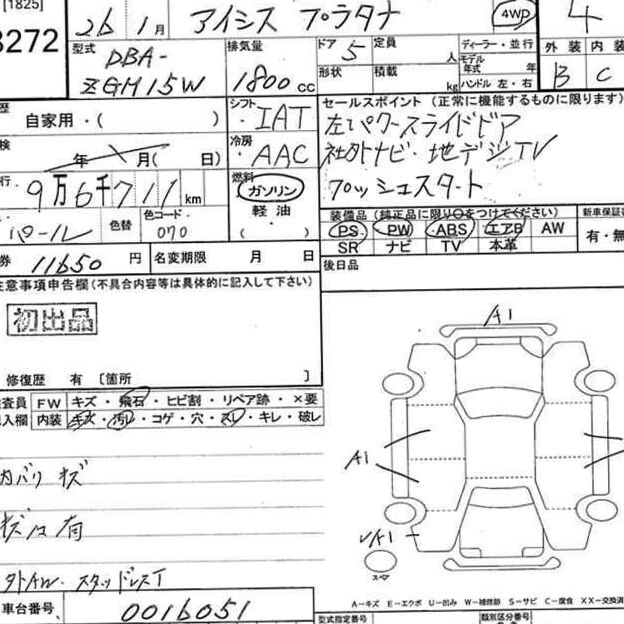 [1825]
8272
26 1月 アイシス プラタナ 4WD 4
型式 DBA-ZGM15W
排気量 1800 cc
ドア 5 定員 人
形状 積載 kg
ディーラー・並行
モデル年式 年
ハンドル 左・右
外装 内装
B C
歴 自家用・( )
シフト ・IAT
検 年 月( 日)
冷房 ・AAC
セールスポイント (正常に機能するものに限ります)
左パワースライドドア
社外ナビ・地デジTV
プッシュスタート
行 9万6千711 km
燃料 ガソリン
軽油
・( )
パール 色替 色コード・ 070
装備品 (純正品に限り○をつけてください) 新車保証書
PS PW ABS エアB AW 有・無
SR ナビ TV 本革
券 11650 円 名変期限 月 日
後日品
注意事項申告欄(不具合内容等は具体的に記入して下さい)
初出品
修復歴 有 [箇所 ]
検査員 FW キズ・飛石・ヒビ割・リペア跡・×要
記入欄 内装 キズ・汚レ・コゲ・穴・スレ・キレ・破レ
内バリ キズ
キズ凹有
外AW. スタッドレスT
車台番号 0016051
A1
A1
A1
スペア
A-キズ E-エクボ U-凹み W-補修跡 S-サビ C-腐食 XX-交換済
型式指定番号 類別区分番号